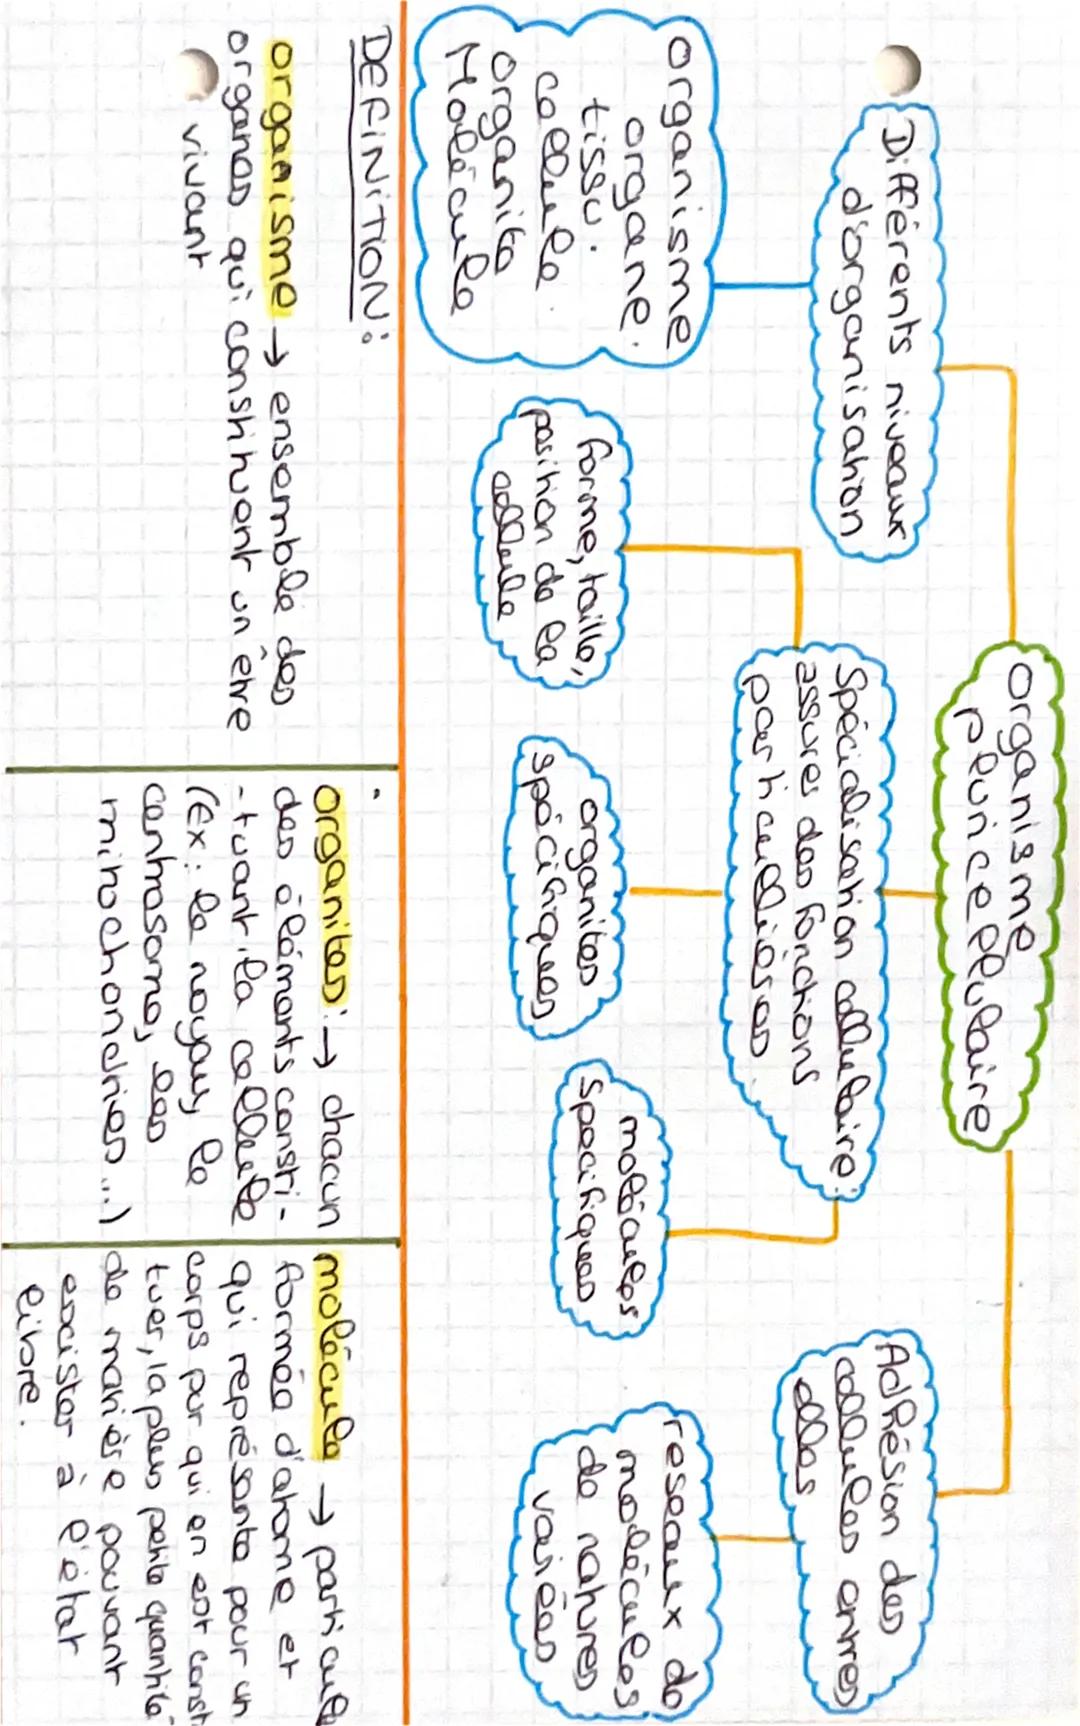 organisme
pluricellulaire
Différents niveaux
d'organisation
organisme
organe.
tissu.
cellule.
organite
Molécule
Spécialisation cellulaire:
assures des fonctions
particulières
forme, taille,
position de la
cellule
organites
spécifiques
molécules
specifiques
Adhésion des
cellules entres
elles
reseaux de
molécules
de natures
variées
DEFINITION:
organisme → ensemble des
organes qui constituent un être
vivant
organites: → chacun
des éléments consti-
-tuant la cellule
(Ex: le noyau, le
centrosome, les
mitochondries...)
molécule → particule
formée d'atome et
qui représente pour un
corps pur qui en est const
tuer, la plus petite quantité
de manière pouvant
exister à l'état
libre.